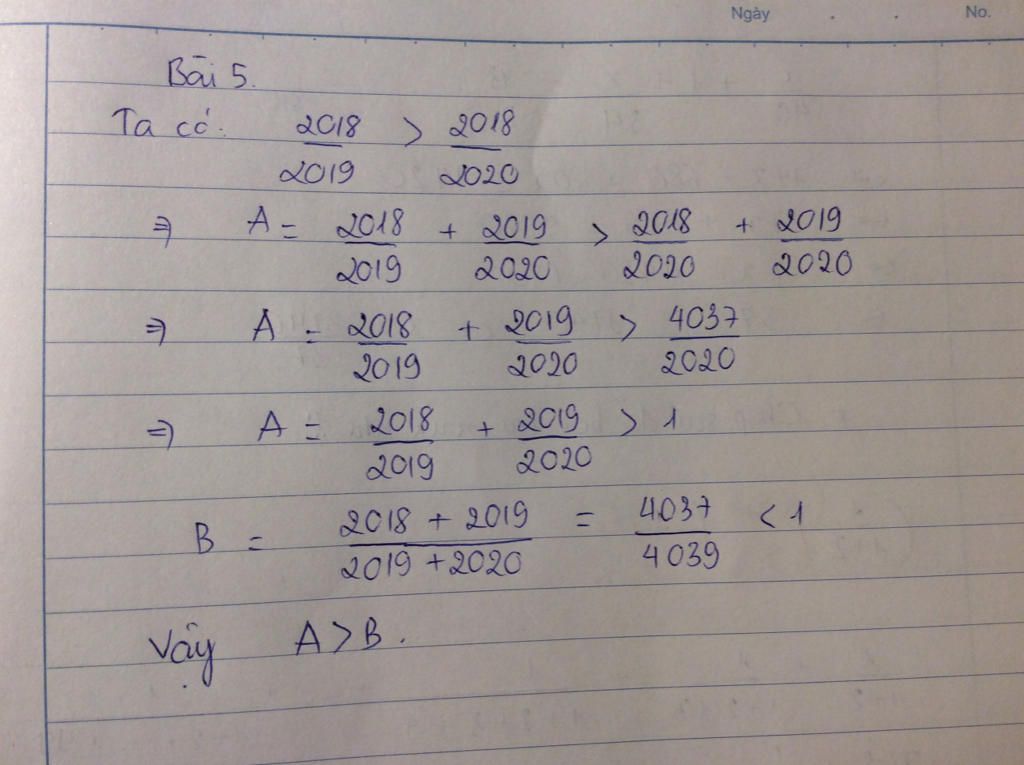 Ngày . . No.
Bài 5.
Ta có: 2018/2019 > 2018/2020
⇒ A = 2018/2019 + 2019/2020 > 2018/2020 + 2019/2020
⇒ A = 2018/2019 + 2019/2020 > 4037/2020
⇒ A = 2018/2019 + 2019/2020 > 1
B = (2018 + 2019)/(2019 + 2020) = 4037/4039 < 1
Vậy A > B.